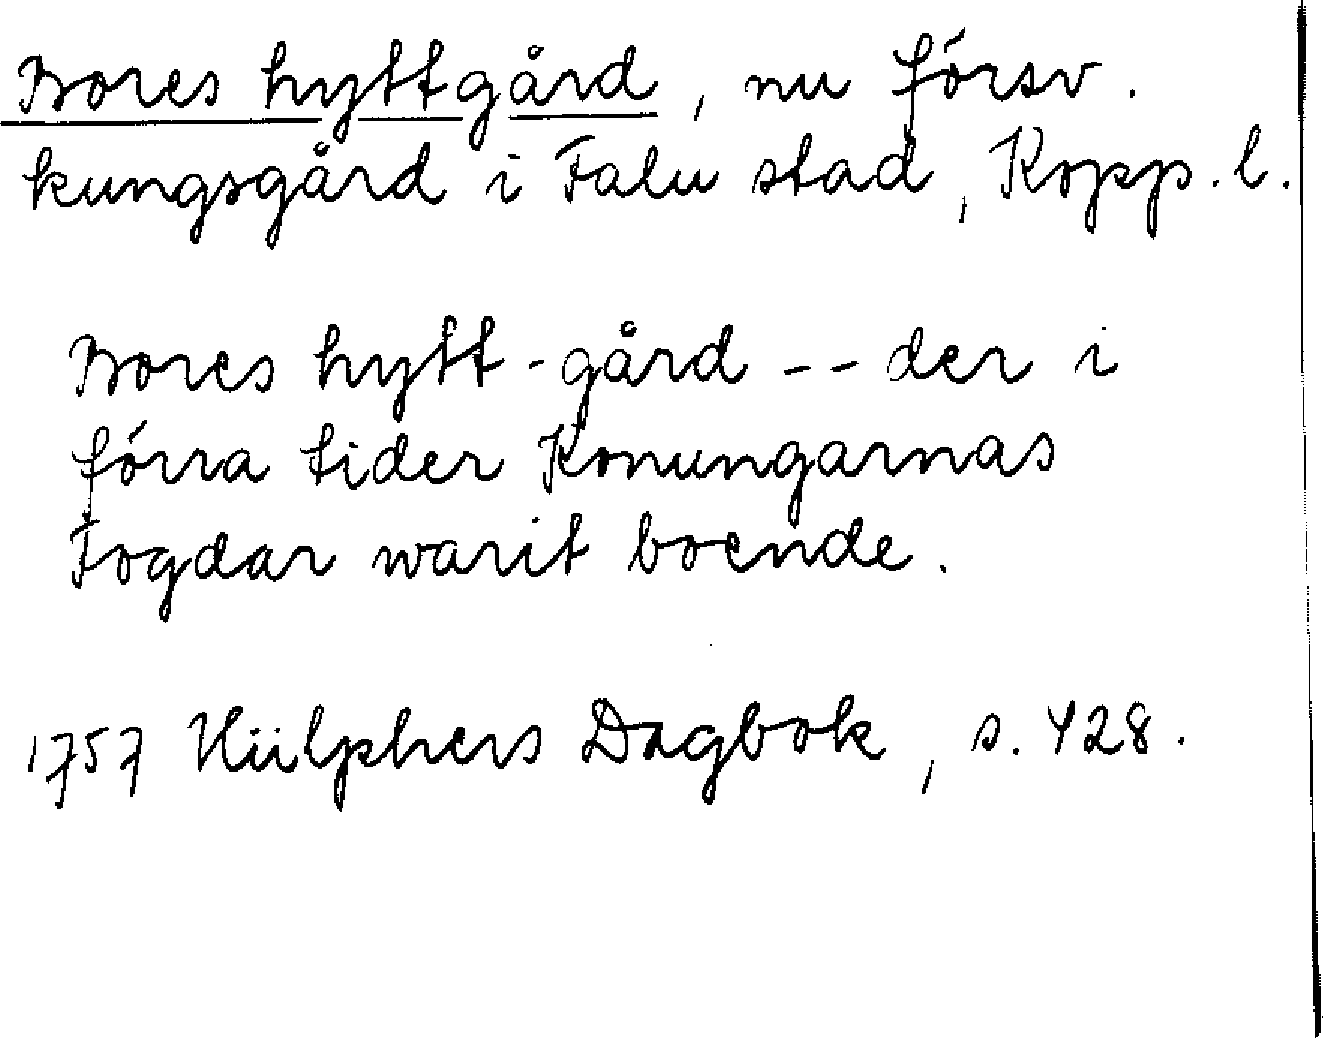 Bores hyttgård, nu försv.
kungsgård i Falu stad, Kopp. l.
Bores hytt-gård -- der i
förra tider Konungarnas
Fogdar warit boende.
1757 Hülphers Dagbok, s. 428.